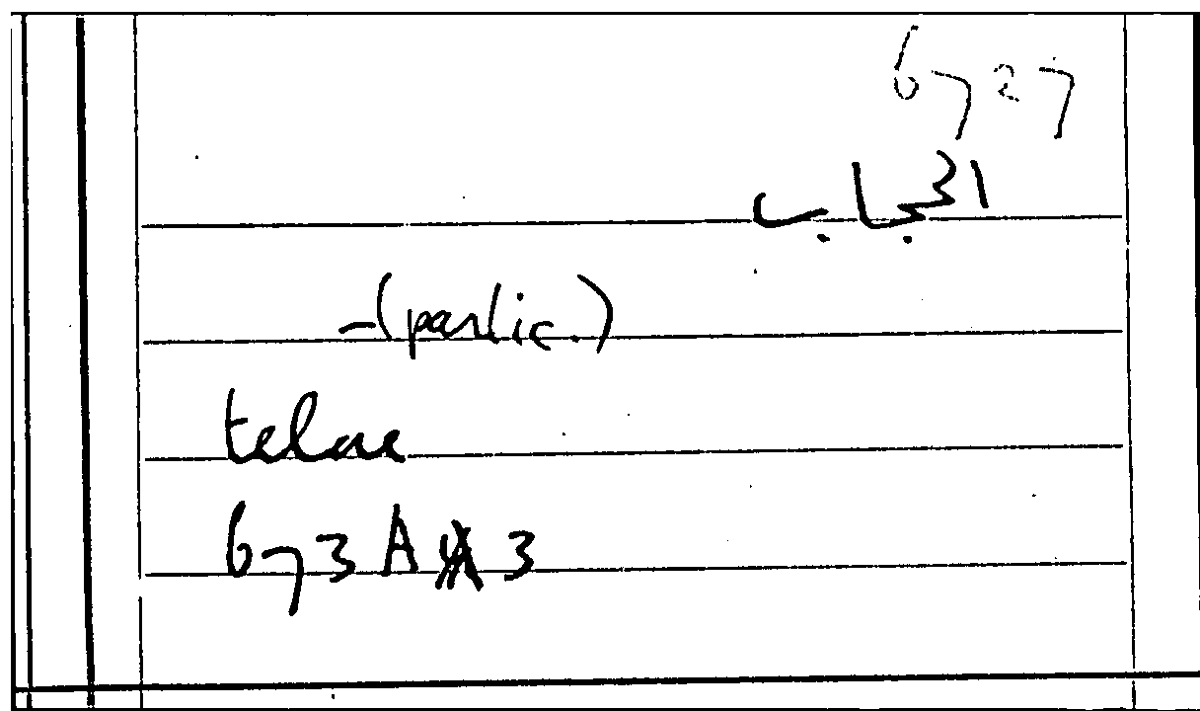 6727
الحجاب
-(partic.)
telae
673 A 3